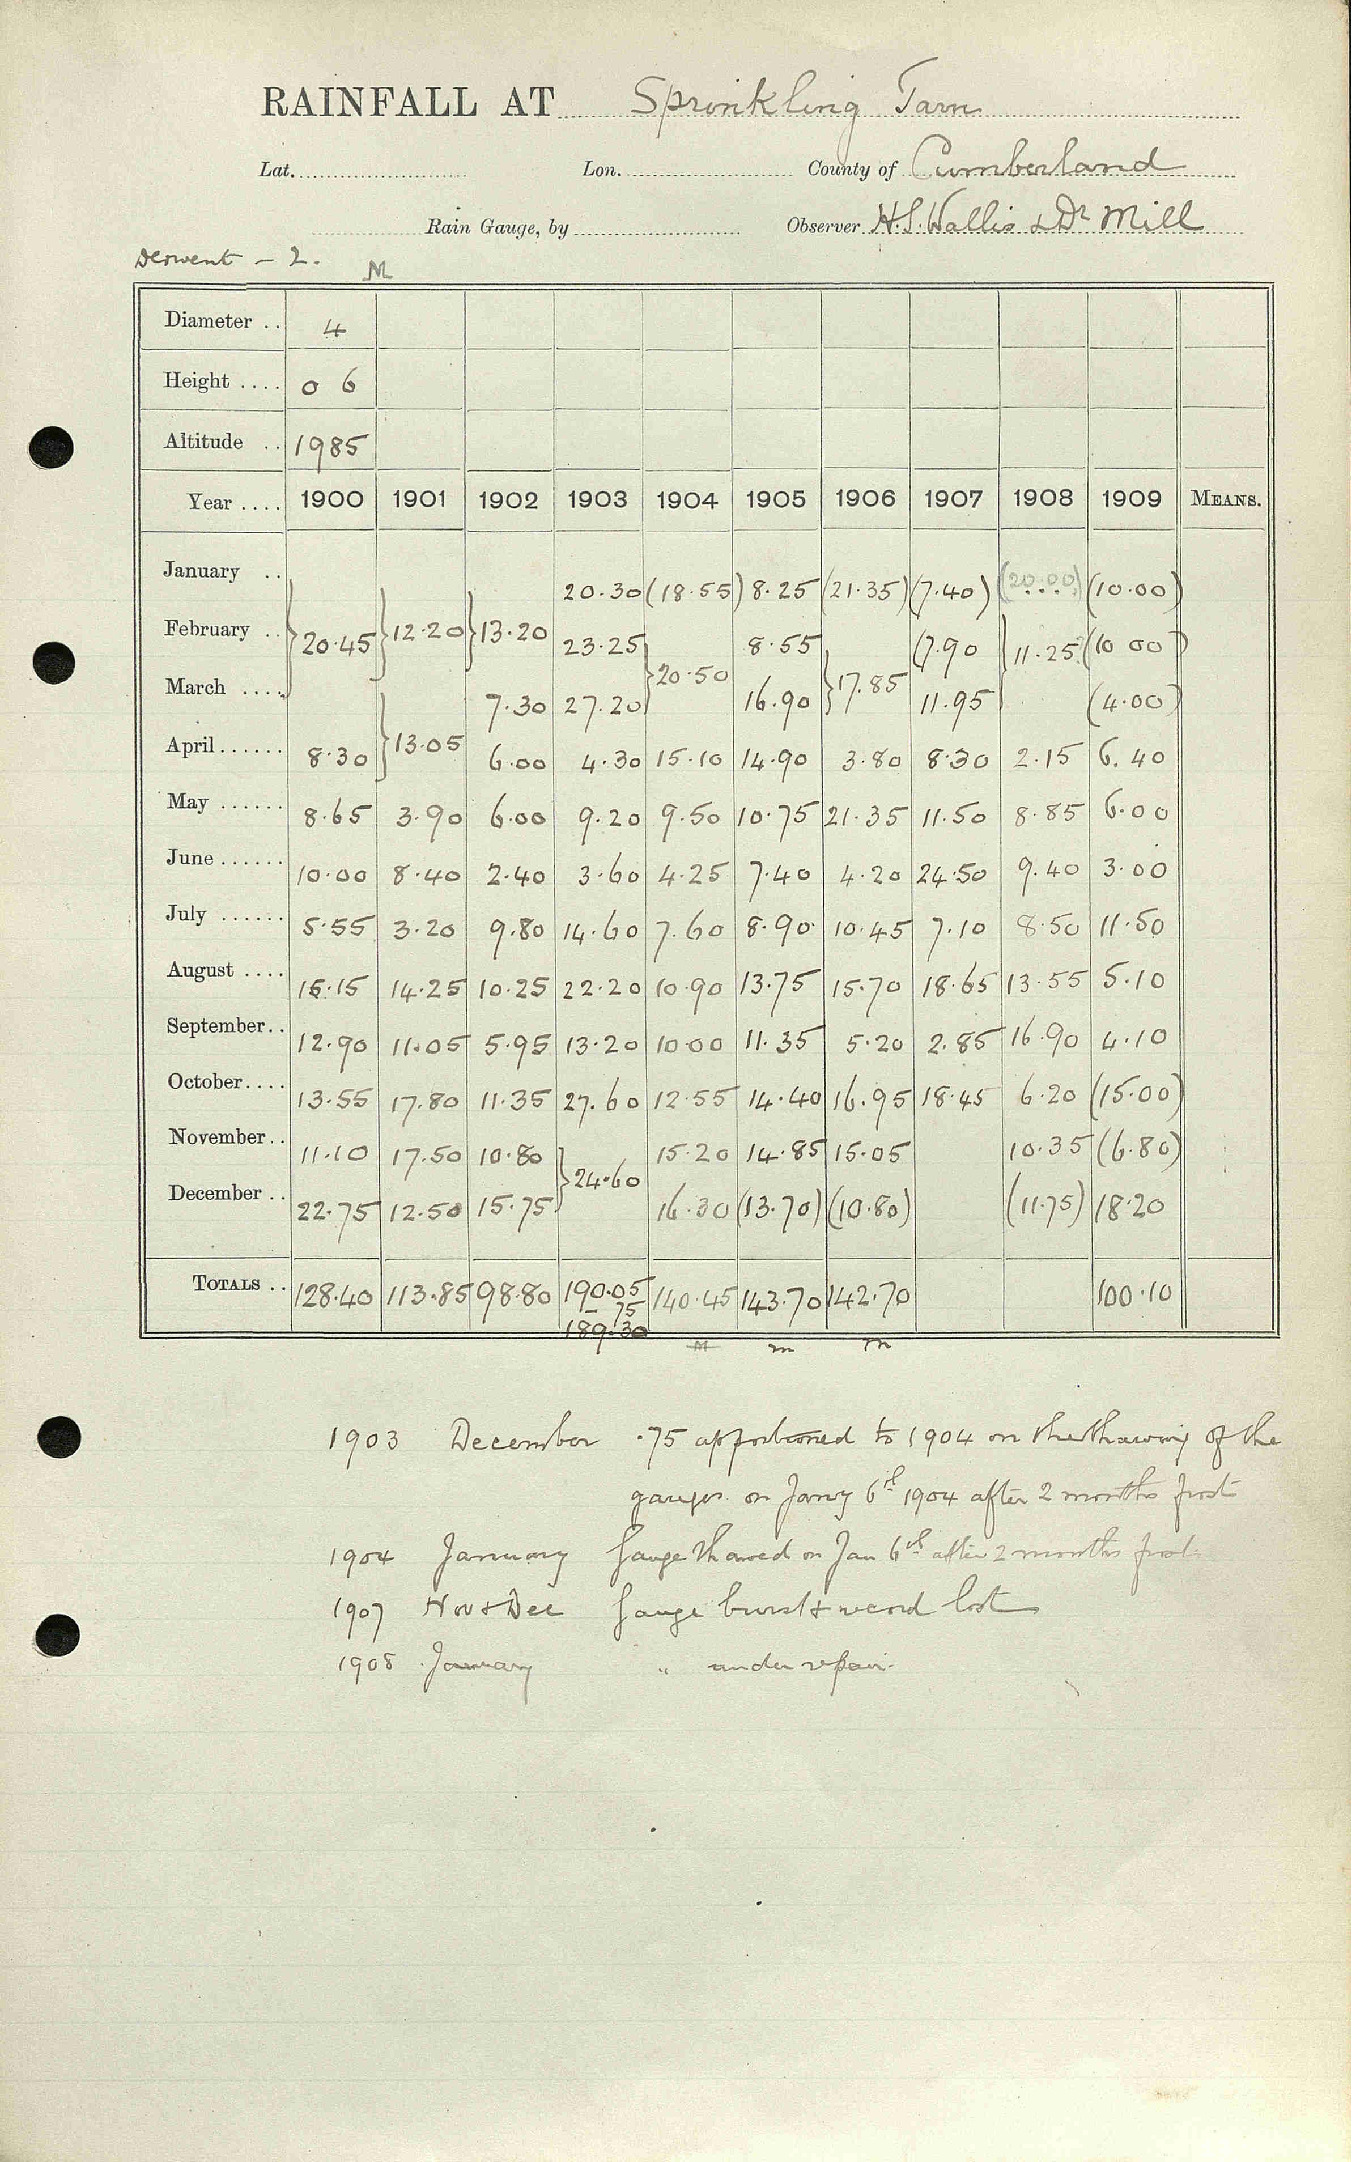 RAINFALL AT Sprinkling Tarn
Lat. Lon. County of Cumberland
Rain Gauge, by Observer H.S. Wallis & Dr Mill
Derwent - 2. M
Diameter .. 4
Height .... 0 6
Altitude .. 1985
Year .... 1900 1901 1902 1903 1904 1905 1906 1907 1908 1909 MEANS.
January .. 20.30 (18.55) 8.25 (21.35) (7.40) (20.00) (10.00)
February .. } 20.45 } 12.20 } 13.20 23.25 8.55 (7.90 } 11.25 (10 00)
March .... 7.30 27.20 } 20.50 16.90 } 17.85 11.95 (4.00)
April ...... 8.30 } 13.05 6.00 4.30 15.10 14.90 3.80 8.30 2.15 6.40
May ...... 8.65 3.90 6.00 9.20 9.50 10.75 21.35 11.50 8.85 6.00
June ...... 10.00 8.40 2.40 3.60 4.25 7.40 4.20 24.50 9.40 3.00
July ...... 5.55 3.20 9.80 14.60 7.60 8.90 10.45 7.10 8.50 11.50
August .... 15.15 14.25 10.25 22.20 10.90 13.75 15.70 18.65 13.55 5.10
September .. 12.90 11.05 5.95 13.20 10.00 11.35 5.20 2.85 16.90 4.10
October .... 13.55 17.80 11.35 27.60 12.55 14.40 16.95 18.45 6.20 (15.00)
November .. 11.10 17.50 10.80 } 24.60 15.20 14.85 15.05 10.35 (6.80)
December .. 22.75 12.50 15.75 16.30 (13.70) (10.80) (11.75) 18.20
TOTALS .. 128.40 113.85 98.80 190.05 140.45 143.70 142.70 100.10
- 75
189.30
M m m
1903 December .75 apportioned to 1904 on the thawing of the
gauges on Jany 6th 1904 after 2 months frost
1904 January Gauge thawed on Jan 6th after 2 months frost
1907 Nov & Dec Gauge burst & record lost
1908 January " under repair